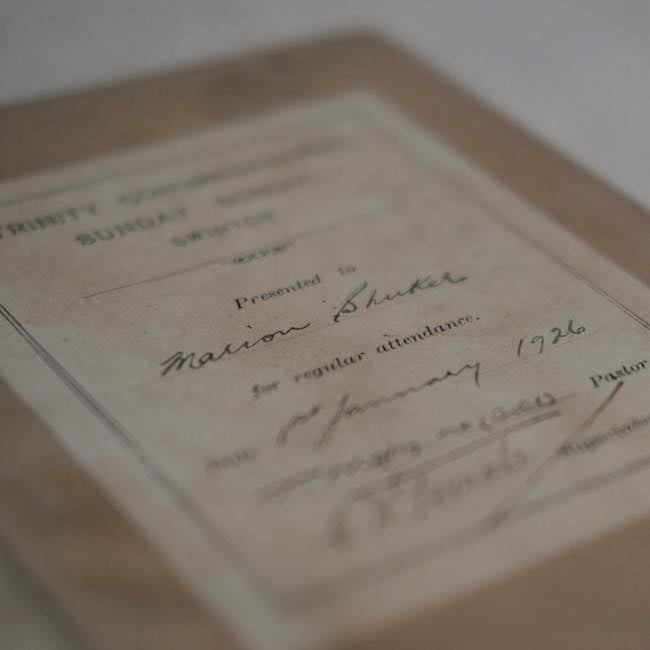 TRINITY CONGREGATIONAL
SUNDAY SCHOOL
SWINTON
Presented to
Marion Shuker
for regular attendance.
Date 1st January 1926
Pastor